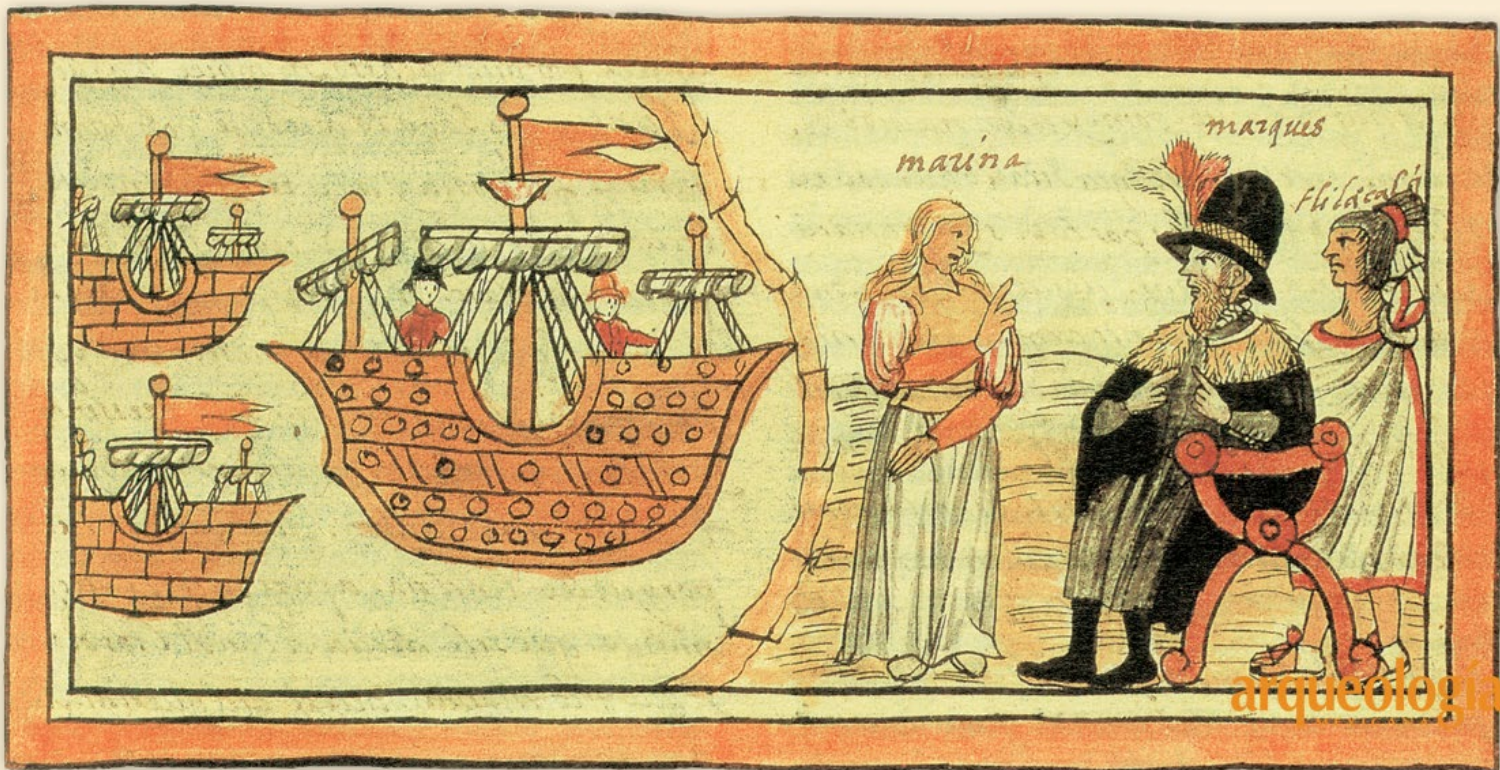 marina
marques
tlilacatl
arqueología
MEXICANA